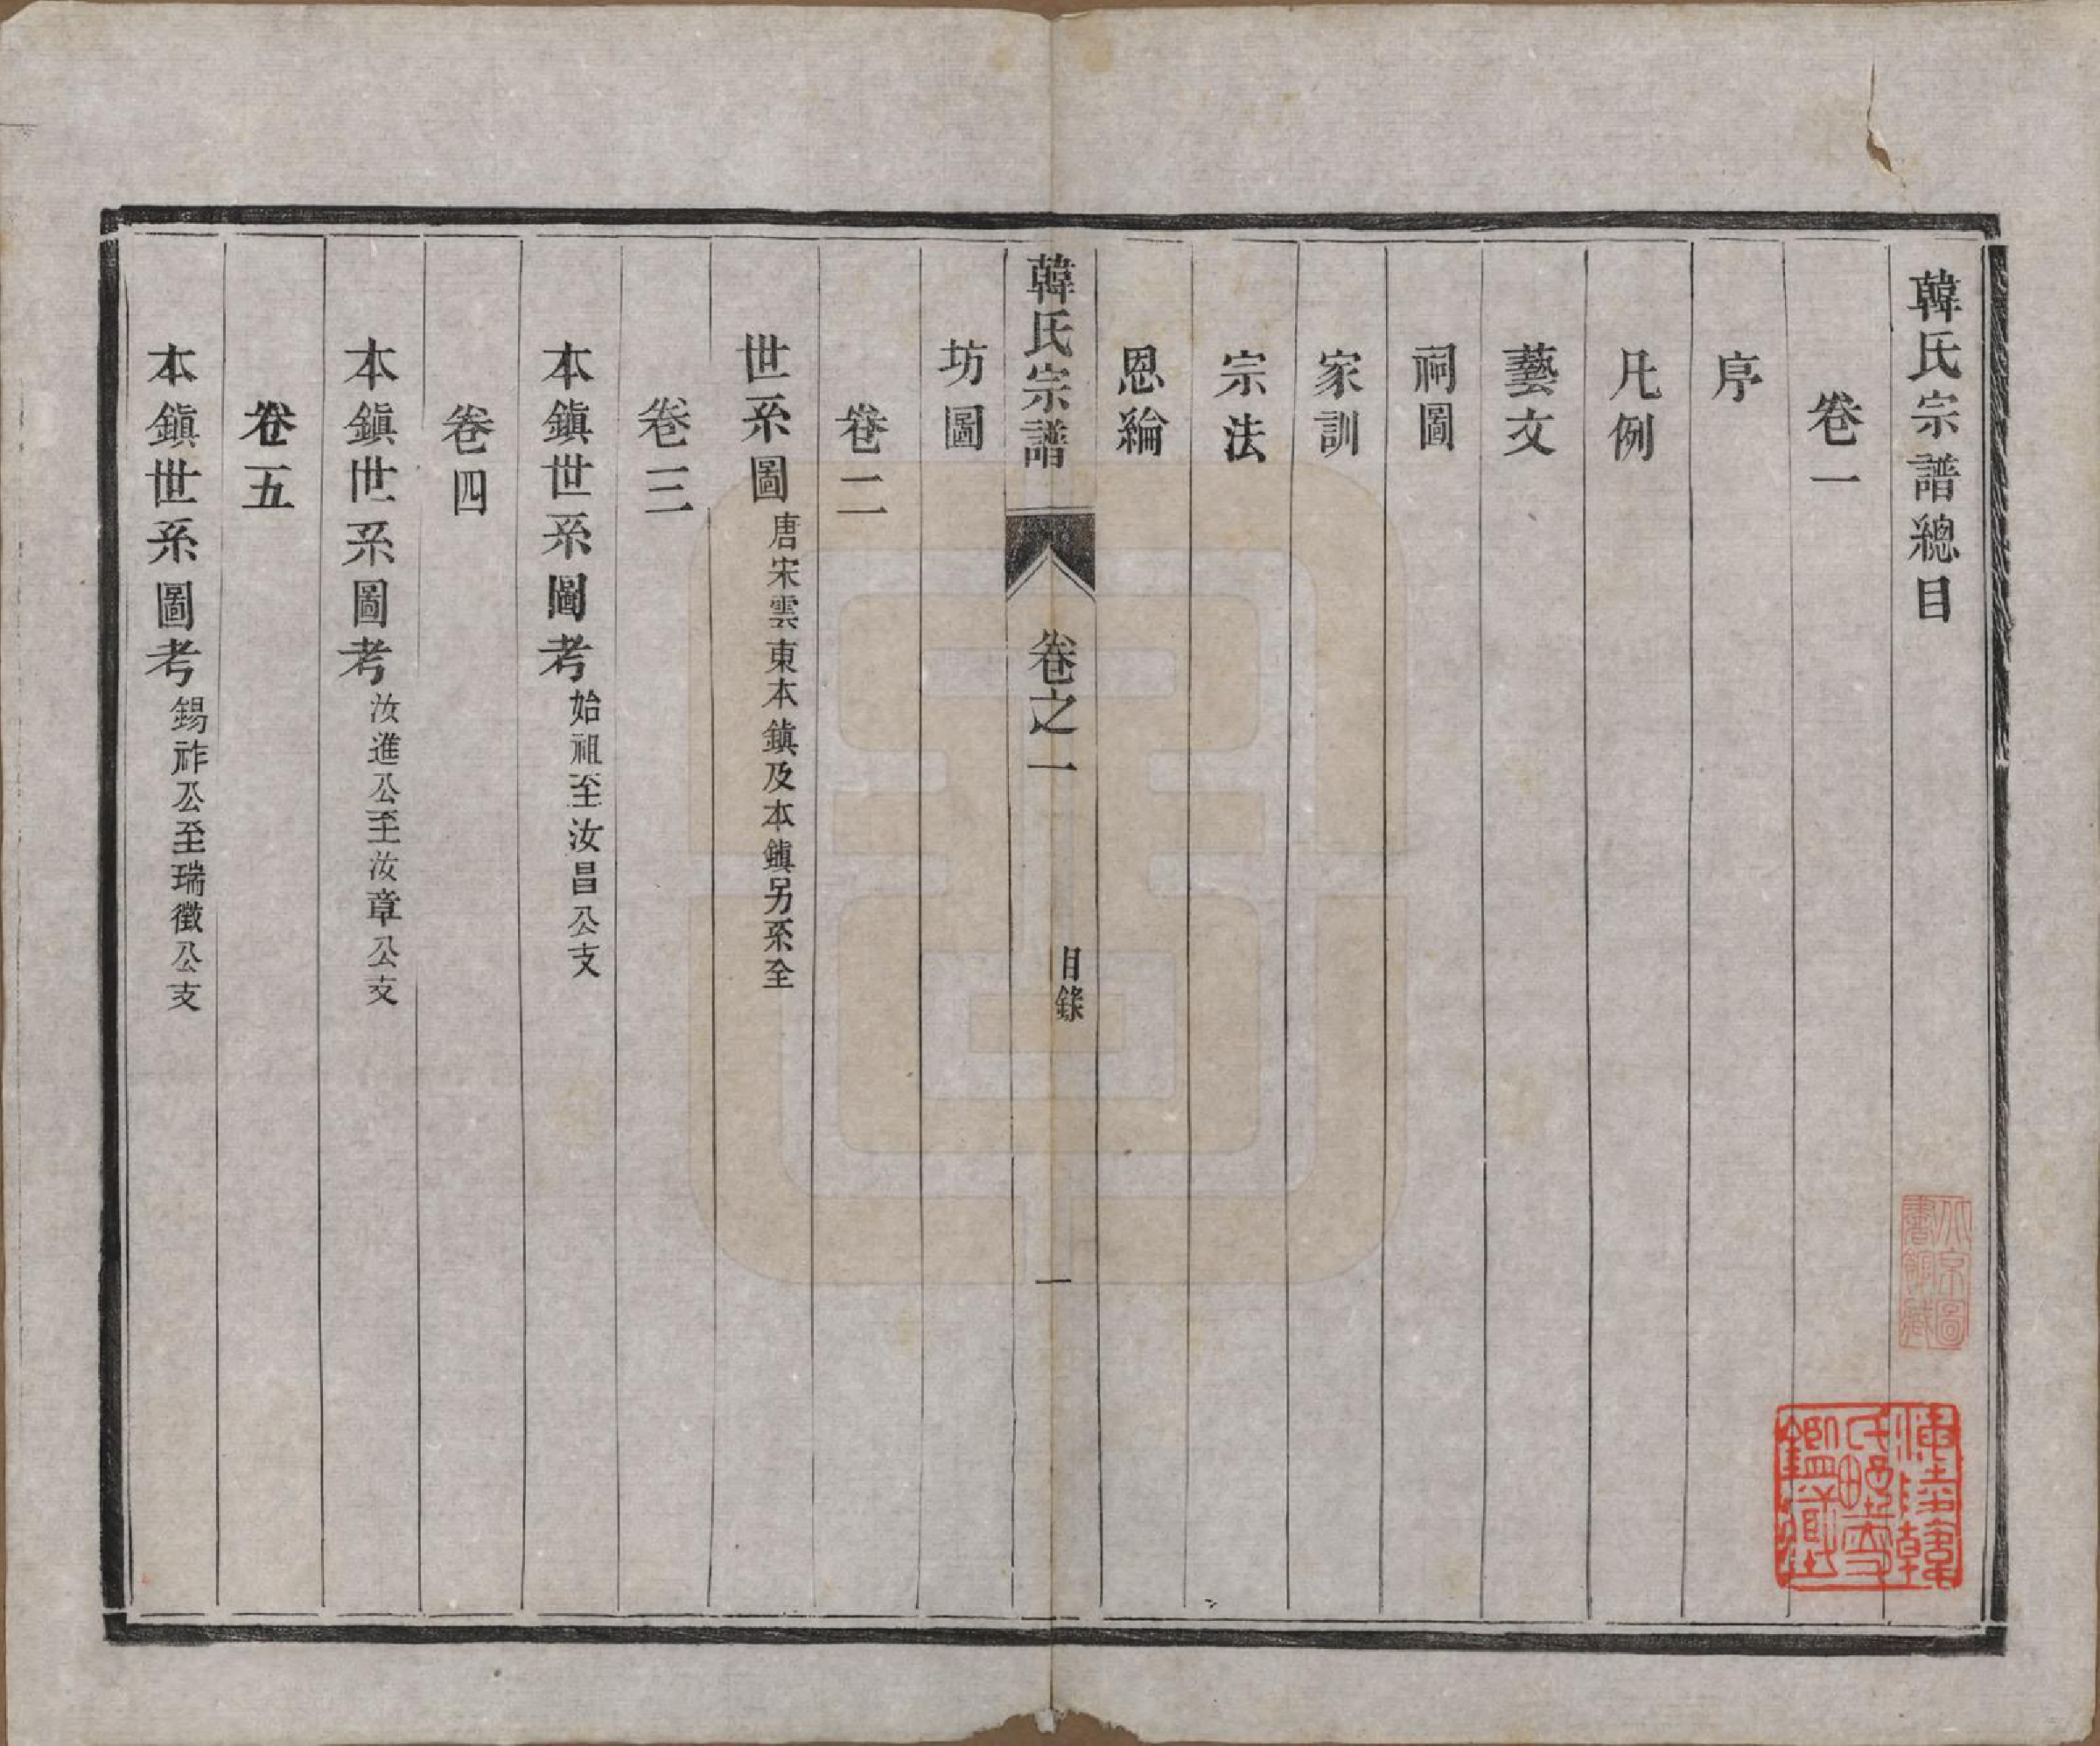 韓氏宗譜總目
卷一
序
凡例
藝文
祠圖
家訓
宗法
恩綸
韓氏宗譜 卷之一 目錄 一
坊圖
卷二
世系圖 唐宋雲東本鎮及本鎮另系全
卷三
本鎮世系圖考 始祖至汝昌公支
卷四
本鎮世系圖考 汝進公至汝章公支
卷五
本鎮世系圖考 錫祚公至瑞徵公支
北京圖書館藏